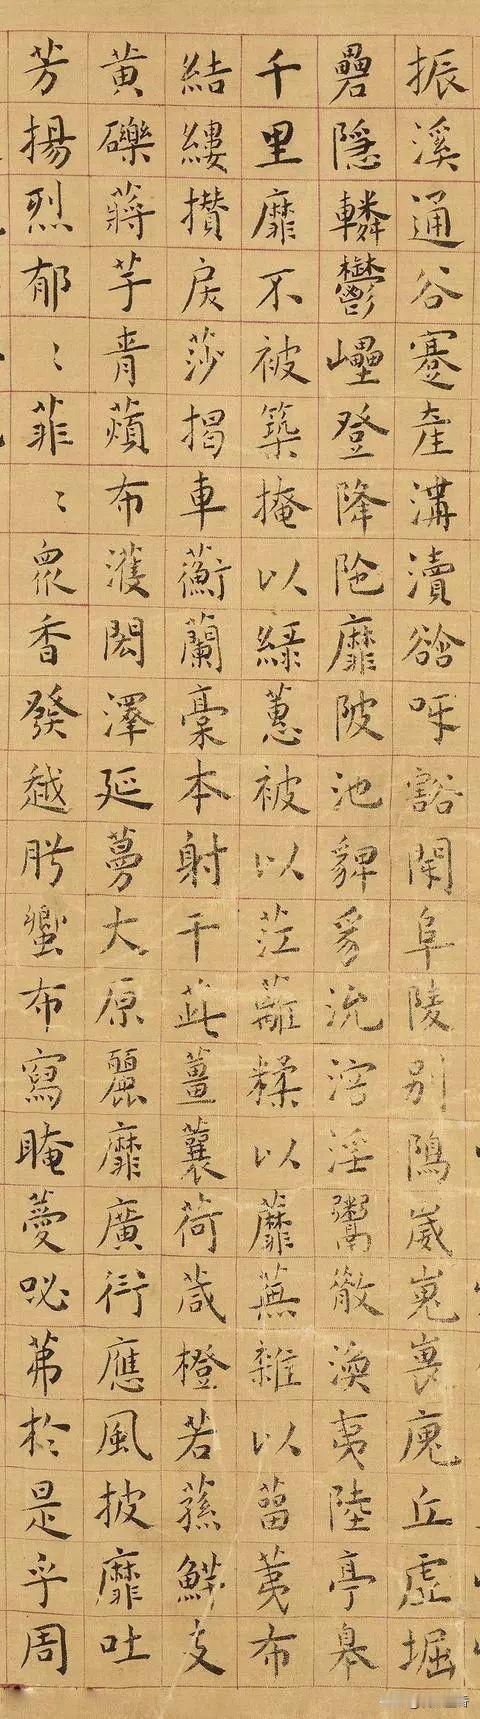 振溪通谷蹇產溝瀆谽呀豁閜阜陵別隝崴嵬裛廆丘虛堀
礨隱轔鬱㠥登降陁靡陂池貏豸沇溶淫鬻散渙夷陸亭皋
千里靡不被築掩以綠蕙被以茳蘺糅以蘼蕪雜以蒥荑布
結縷攢戾莎揭車蘅蘭稾本射干茈薑蘘荷葴橙若蓀鮮支
黃礫蔣芧青薠布濩閎澤延蔓大原麗靡廣衍應風披靡吐
芳揚烈郁〻菲〻眾香發越肸蠁布寫晻薆咇茀於是乎周